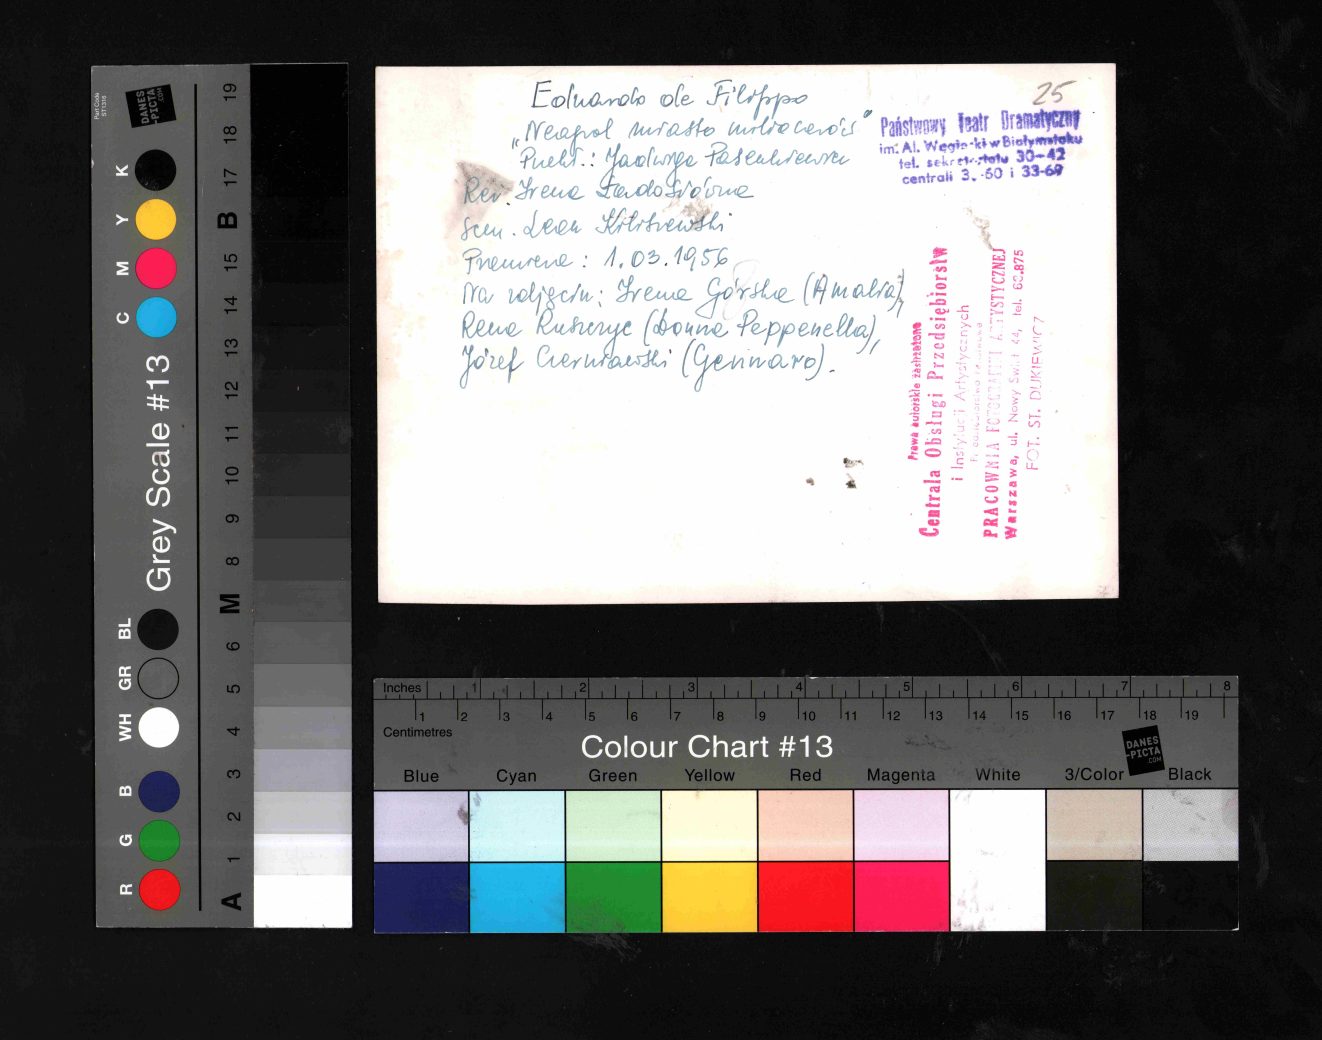 Eduardo de Filippo
25
„Neapol miasto milionerów"
Przekł.: Jadwiga Pasenkiewicz
Reż. Irena Ładosiówna
Scen. Leon Kiliszewski
Premiera: 1.03.1956
Na zdjęciu: Irena Górska (Amalia),
Rena Ruszczyc (Donna Peppenella),
Józef Czerniawski (Gennaro).
Państwowy Teatr Dramatyczny
im. Al. Węgierki w Białymstoku
tel. sekretariatu 30-42
centrali 3 -60 i 33-69
Prawa autorskie zastrzeżone
Centrala Obsługi Przedsiębiorstw
i Instytucji Artystycznych
PRACOWNIA FOTOGRAFII ARTYSTYCZNEJ
Warszawa, ul. Nowy Świat 44, tel. 60.875
FOT. ST. DUKIEWICZ
Part Code
ST1316
DANES
-PICTA
.COM
K Y M C
Grey Scale #13
BL GR WH B G R
19 18 17 B 15 14 13 12 11 10 9 8 M 6 5 4 3 2 1 A
Inches 1 2 3 4 5 6 7 8
1 2 3 4 5 6 7 8 9 10 11 12 13 14 15 16 17 18 19
Centimetres
Colour Chart #13
DANES
-PICTA
.COM
Blue Cyan Green Yellow Red Magenta White 3/Color Black